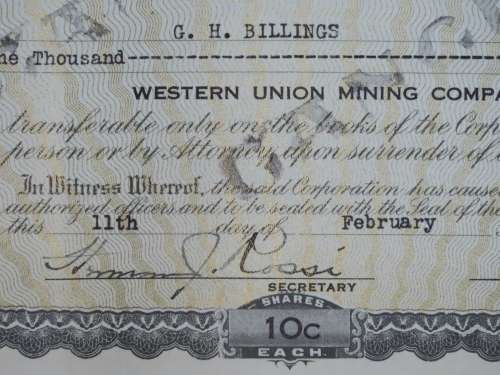 G. H. BILLINGS
ne Thousand
WESTERN UNION MINING COMPA
transferable only on the books of the Corp
person, or by Attorney, upon surrender of
In Witness Whereof, the said Corporation has cause
authorized officers and to be sealed with the Seal of the
this 11th day of February
Herman J. Rossi
SECRETARY
SHARES
10C
EACH.